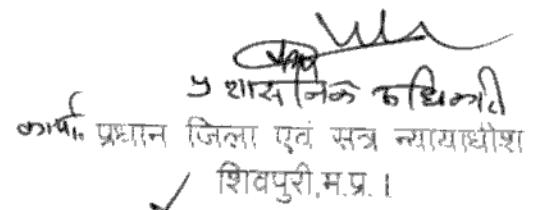 प्रशासनिक अधिकारी
कार्या. प्रधान जिला एवं सत्र न्यायाधीश
शिवपुरी, म.प्र. ।